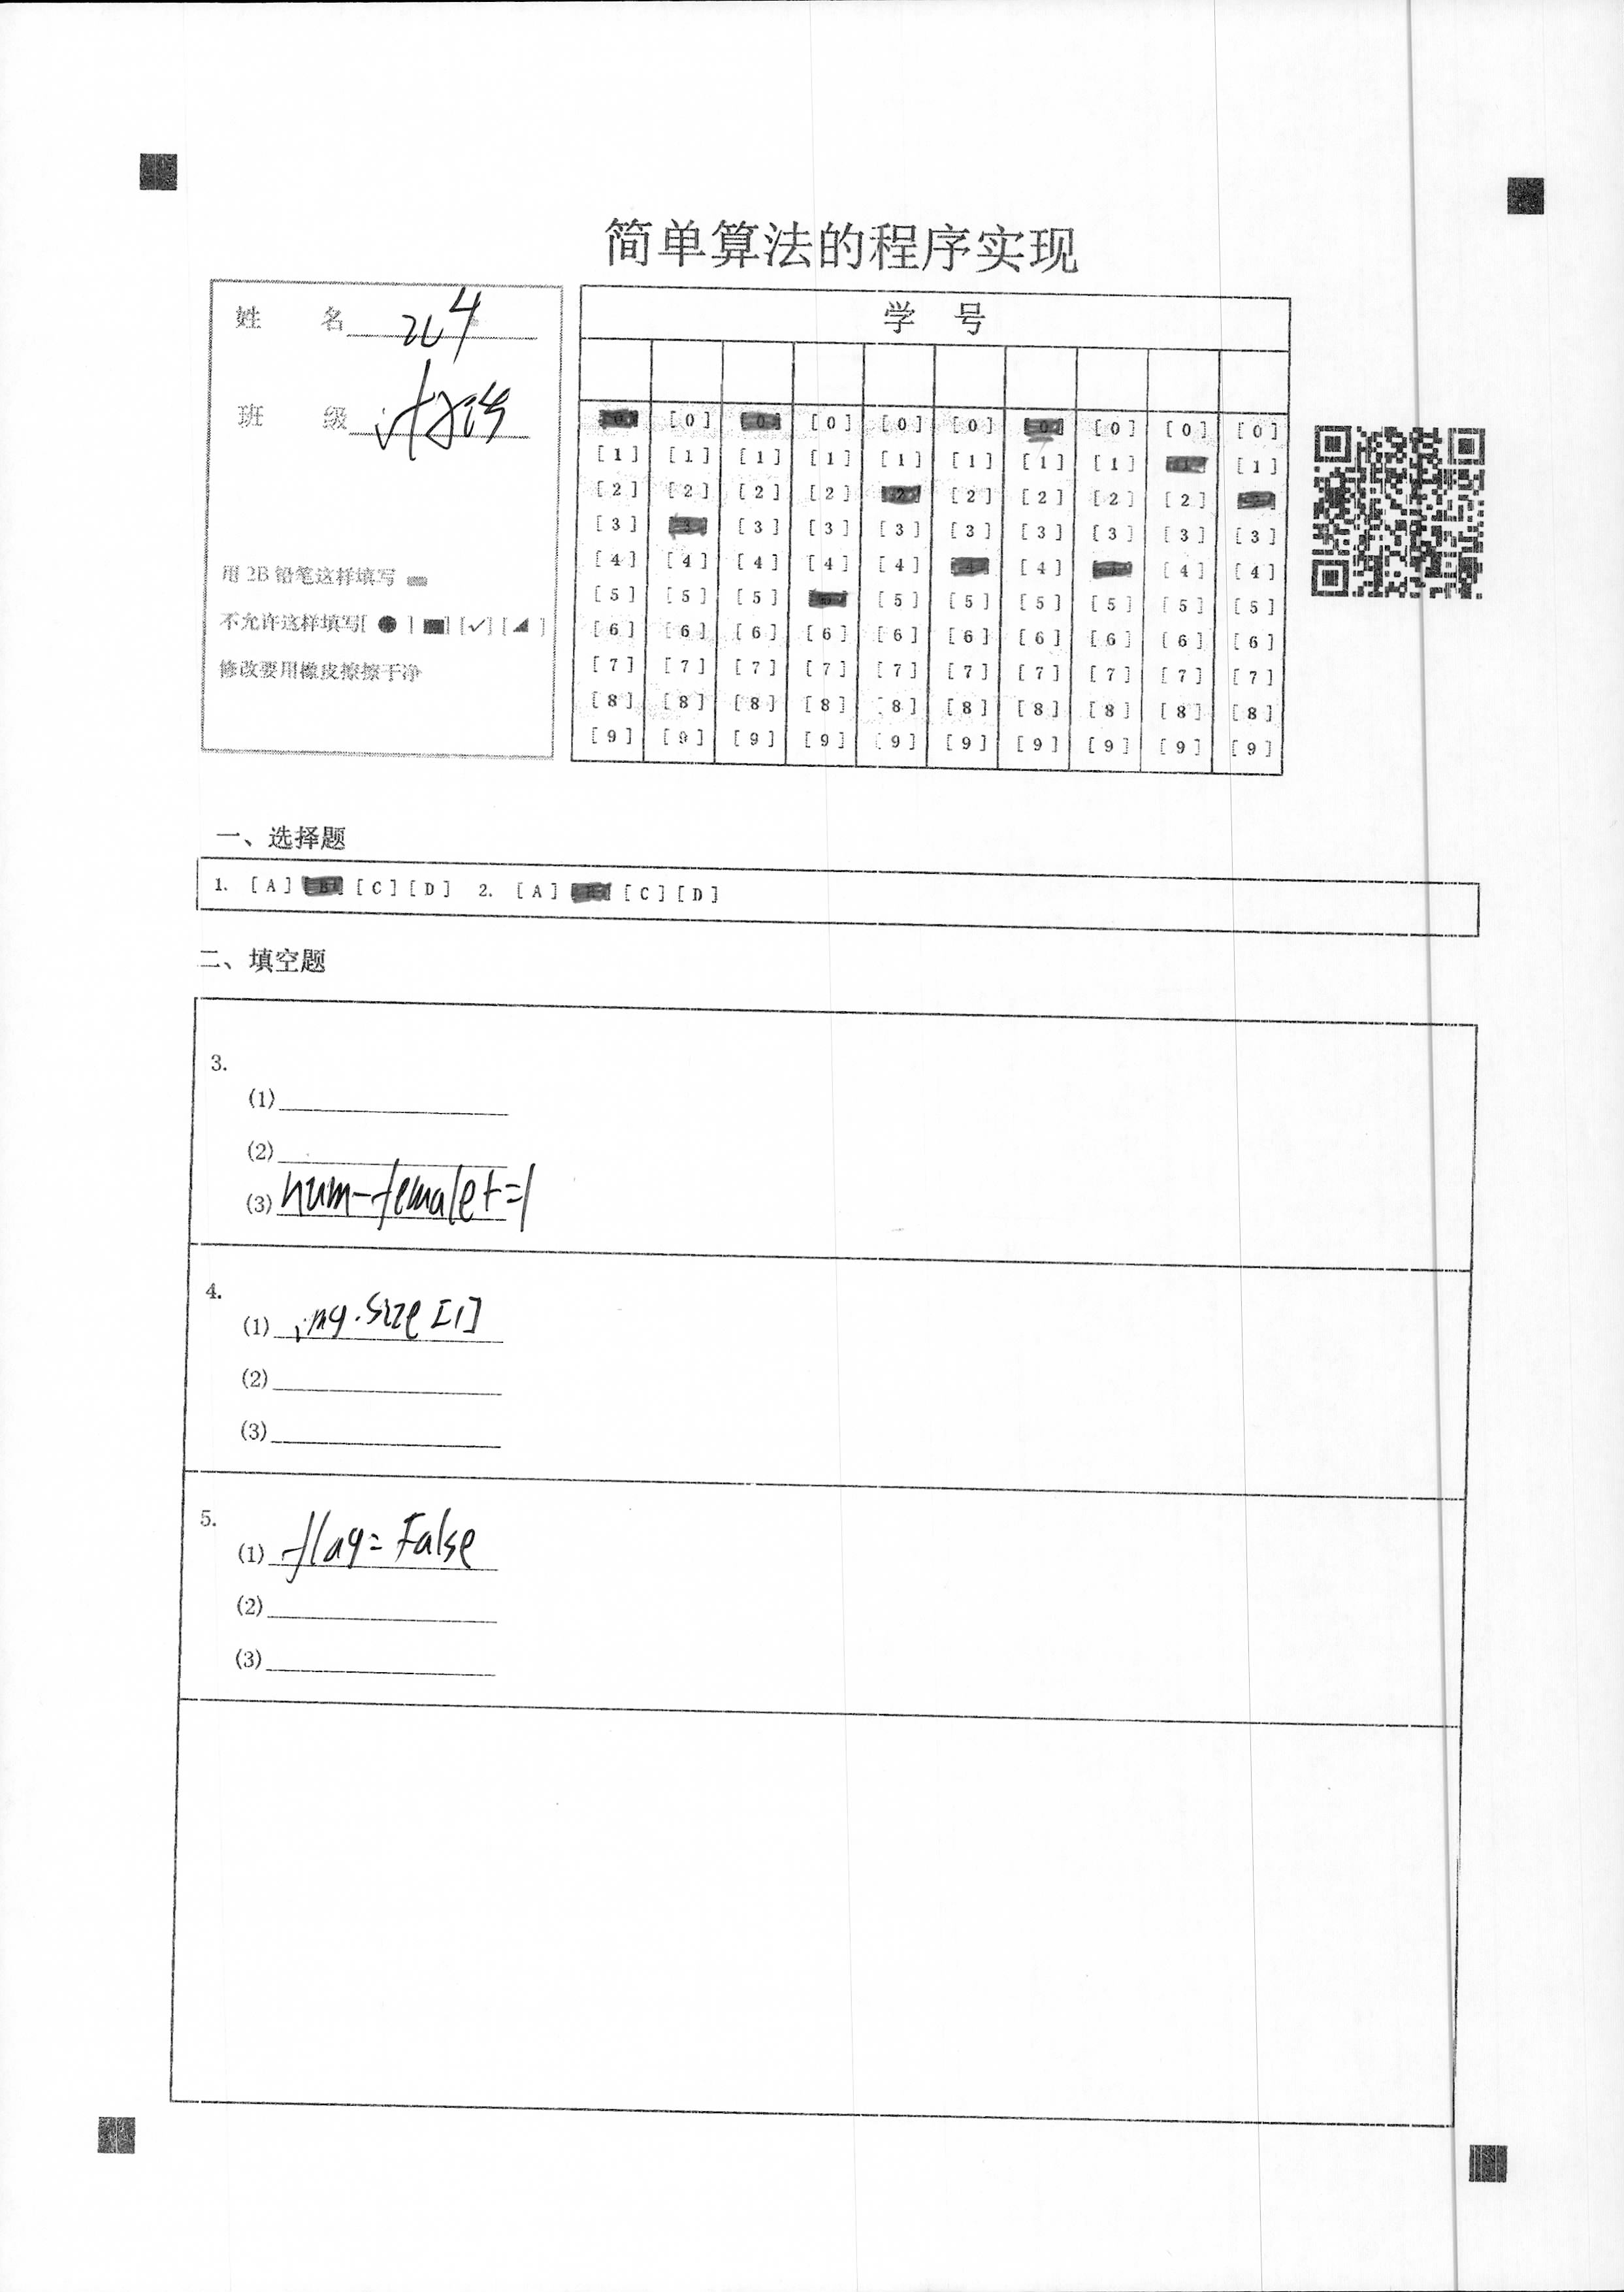 简单算法的程序实现
姓 名 204
班 级
用 2B 铅笔这样填写
不允许这样填写[ ● ] [■] [✓] [◢ ]
修改要用橡皮擦擦干净
学 号
[0] [0] [0] [0] [0] [0] [0] [0] [0] [0]
[1] [1] [1] [1] [1] [1] [1] [1] [1] [1]
[2] [2] [2] [2] [2] [2] [2] [2] [2]
[3] [3] [3] [3] [3] [3] [3] [3] [3]
[4] [4] [4] [4] [4] [4] [4] [4]
[5] [5] [5] [5] [5] [5] [5] [5] [5]
[6] [6] [6] [6] [6] [6] [6] [6] [6] [6]
[7] [7] [7] [7] [7] [7] [7] [7] [7] [7]
[8] [8] [8] [8] [8] [8] [8] [8] [8] [8]
[9] [9] [9] [9] [9] [9] [9] [9] [9] [9]
一、选择题
1. [A] [B] [C] [D] 2. [A] [B] [C] [D]
二、填空题
3.
(1)
(2)
(3) num-female+=1
4.
(1) img.size[1]
(2)
(3)
5.
(1) flag=False
(2)
(3)